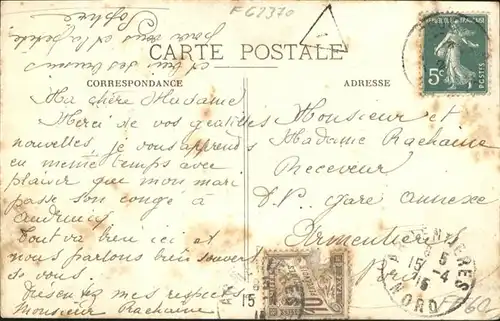 F 62370
Sophie
pour vous et la petite
CARTE POSTALE
CORRESPONDANCE
ADRESSE
5c
POSTES
Ma chère Madame
Merci de vos gentilles
nouvelles, je vous apprends
en même temps avec
plaisir que mon mari
passe son congé à
Audruicq
Tout va bien ici et
nous parlons bien souvent
de vous.
Présentez mes respects
Monsieur Rachaine
Monsieur et
Madame Rachaine
Receveur
D.P. Gare annexe
Armentières
10
ARMENTIERES
15 5
15 -4
NORD
15
FF60